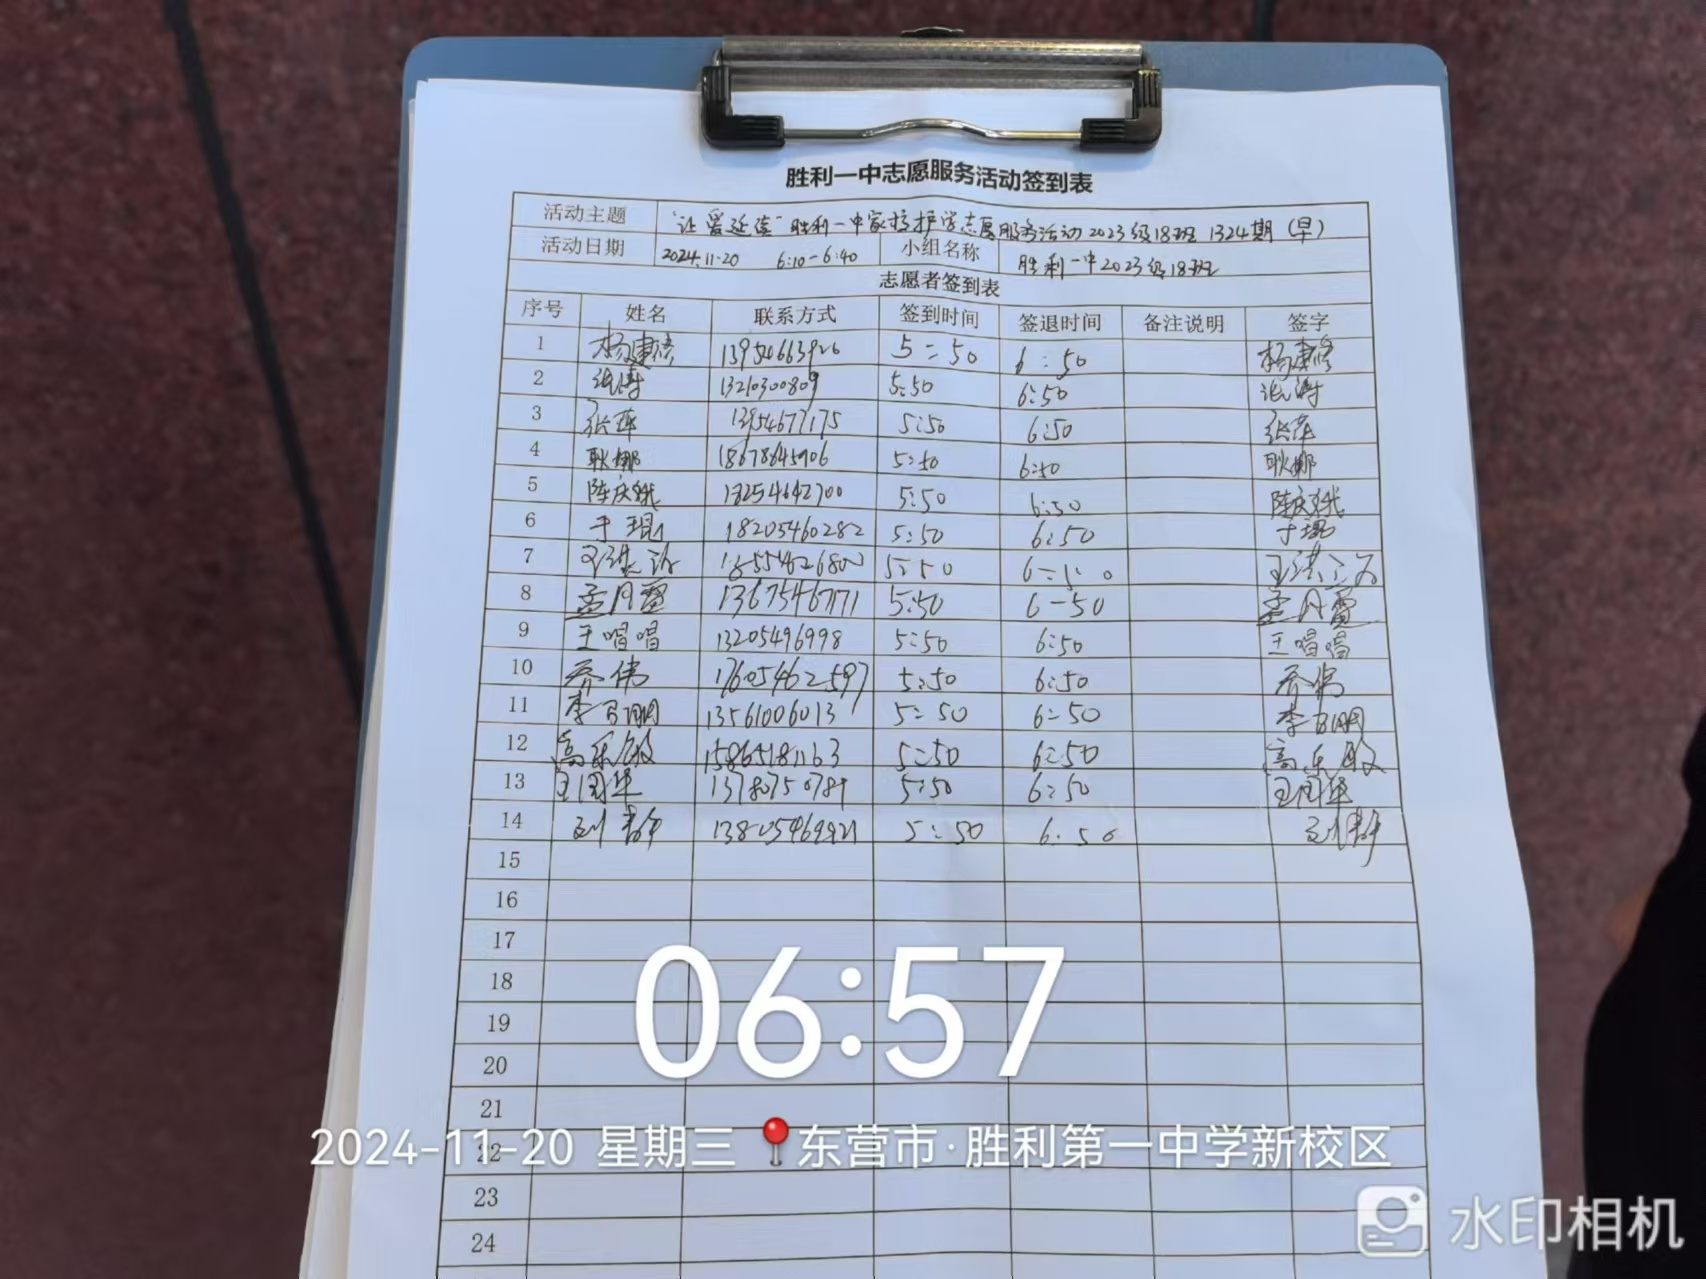 胜利一中志愿服务活动签到表
活动主题 "让爱延续"胜利一中家校护学志愿服务活动2023级18班 1324期（早）
活动日期 2024.11.20 6:10-6:40 小组名称 胜利一中2023级18班
志愿者签到表
序号 姓名 联系方式 签到时间 签退时间 备注说明 签字
1 杨建修 5:50 6:50 杨建修
2 张涛 13210300809 5:50 6:50 张涛
3 张萍 13954677175 5:50 6:50 张萍
4 耿娜 18678645906 5:50 6:50 耿娜
5 陈庆娥 18254642700 5:50 6:50 陈庆娥
6 于琨 18205460282 5:50 6:50 于琨
7 5:50 6:50
8 孟月霞 13675467171 5:50 6-50 孟月霞
9 王唱唱 13205496998 5:50 6:50 王唱唱
10 乔伟 17605462597 5:50 6:50 乔伟
11 李 13561006013 5:50 6:50 李
12 高乐敏 15865181163 5:50 6:50 高乐敏
13 王国华 13780750789 5:50 6:50 王国华
14 刘静 5:50 6:50 刘静
15
16
17
18
19
20
21
22
23
24
06:57
2024-11-20 星期三 东营市·胜利第一中学新校区
水印相机